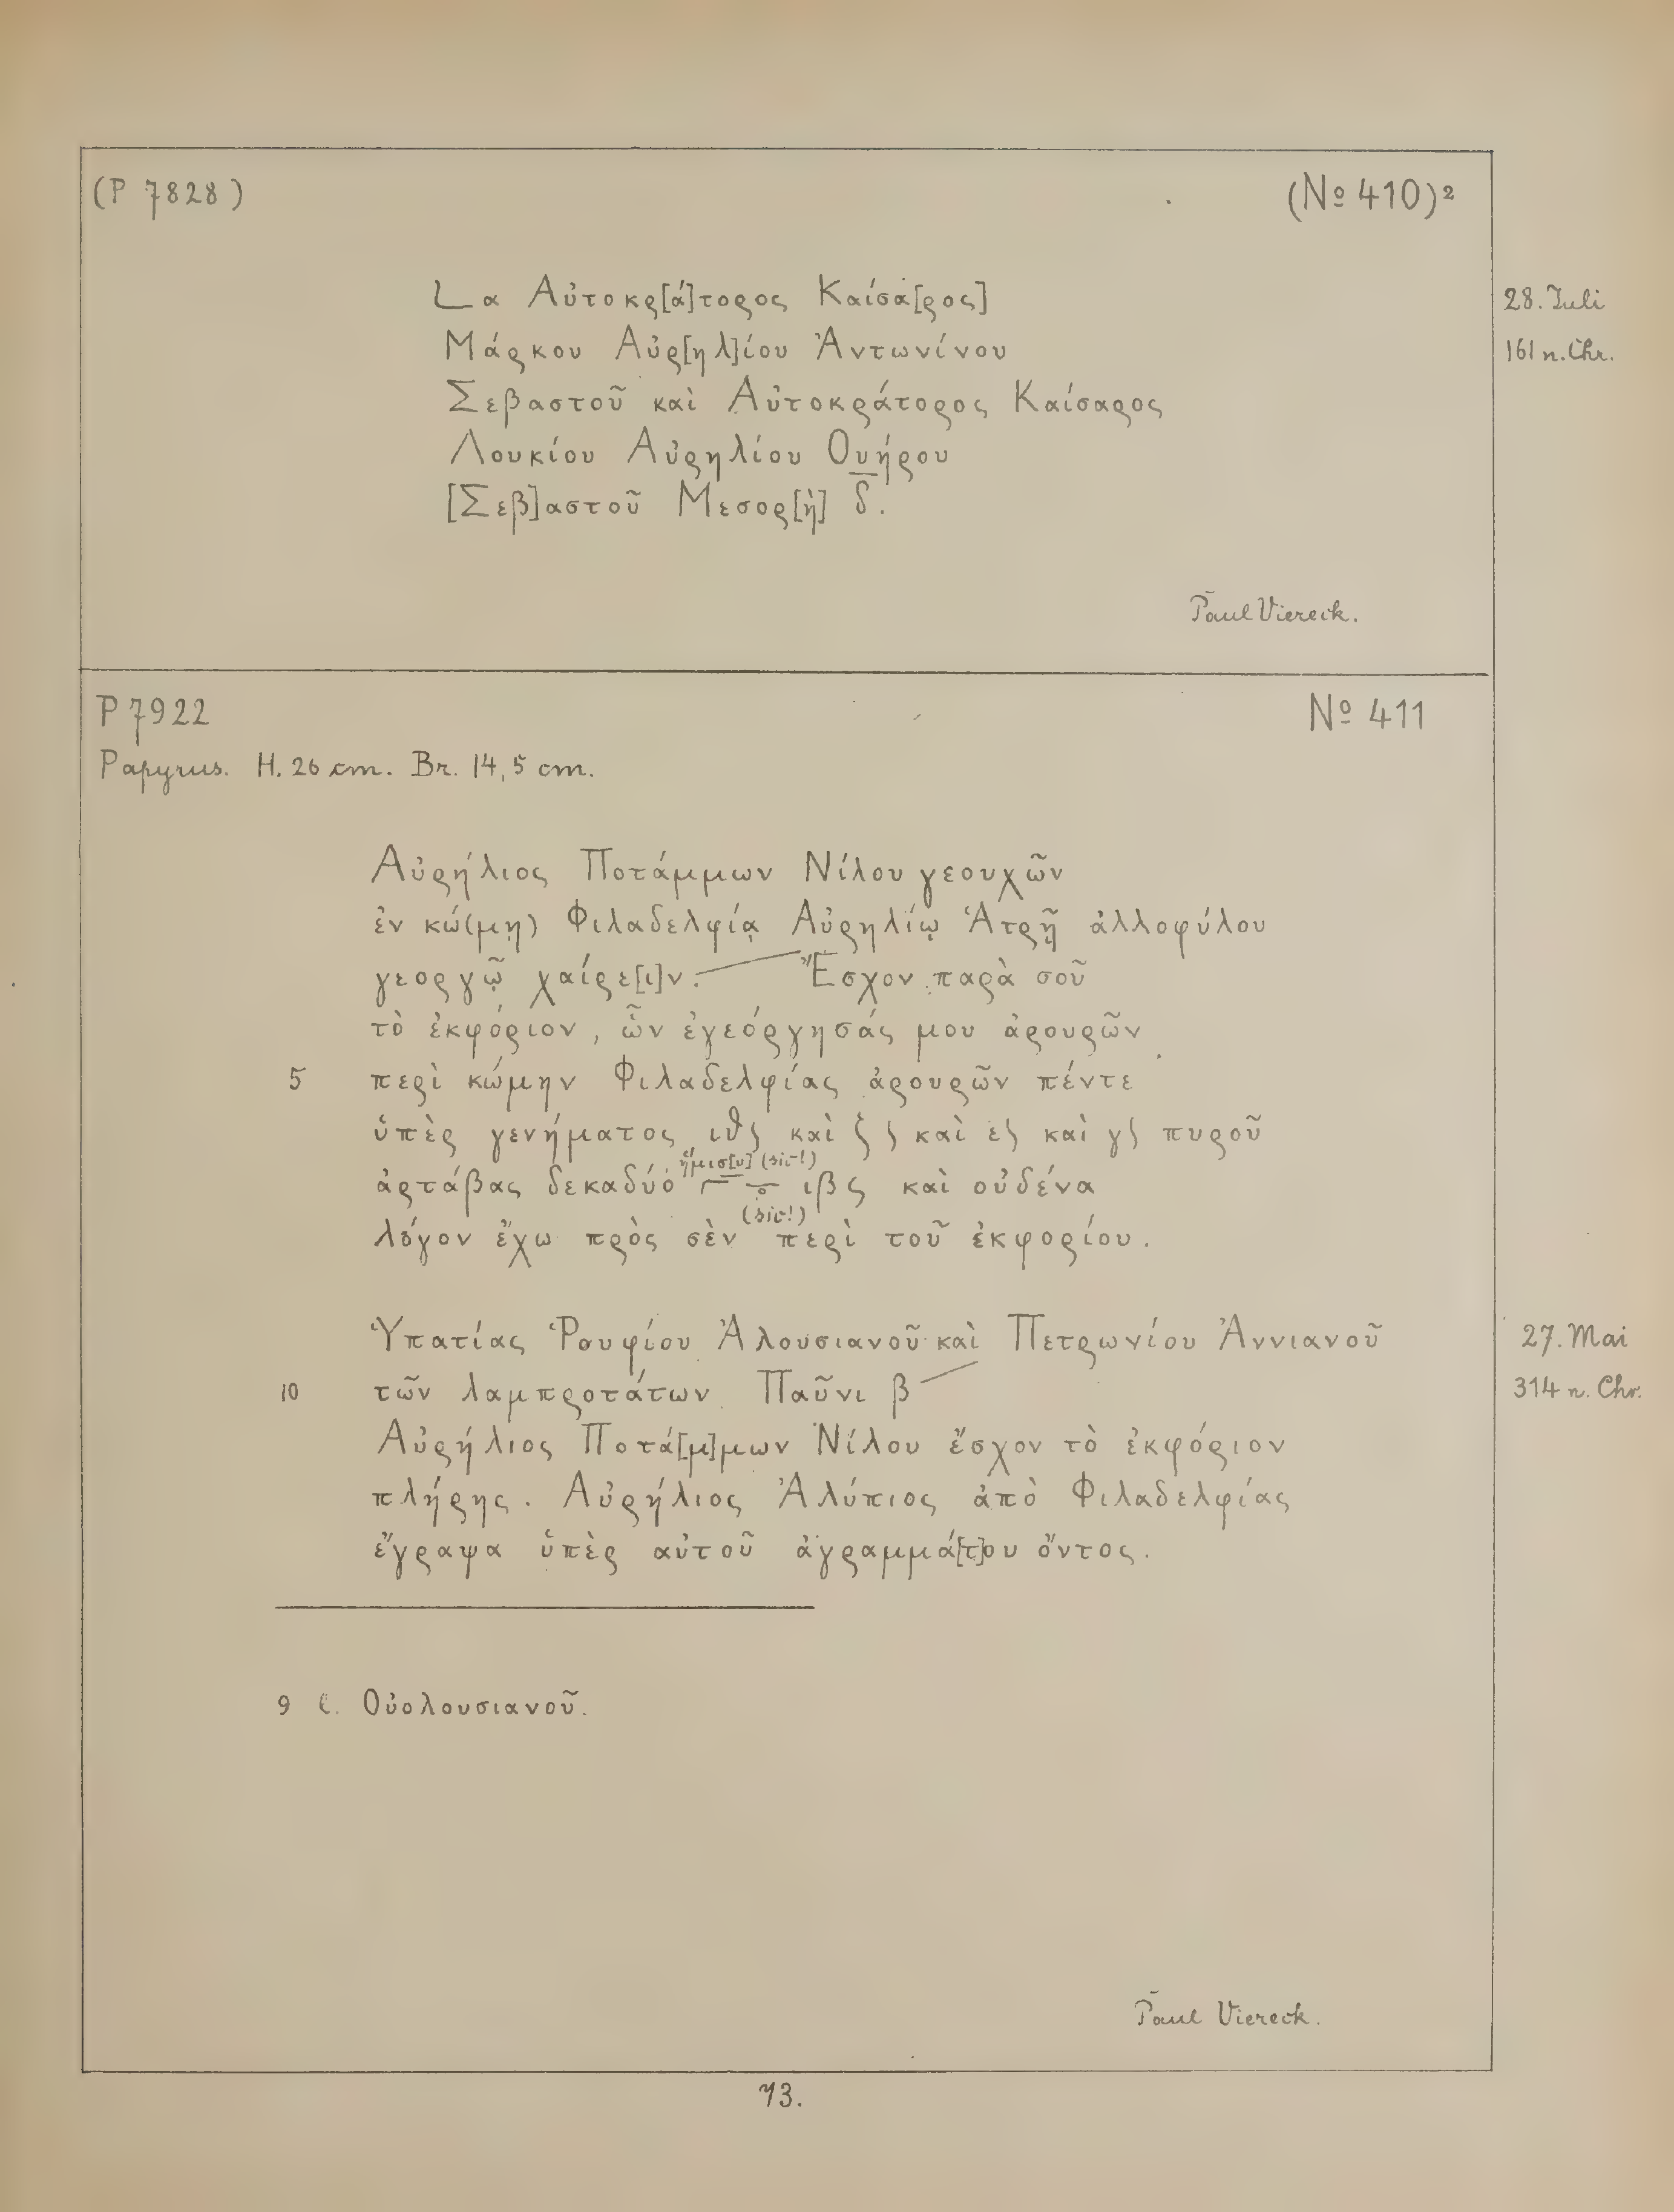 (P 7828)
(No 410)²
L α Αὐτοκρ[ά]τορος Καίσα[ρος]
28. Juli
Μάρκου Αὐρ[ηλ]ίου Ἀντωνίνου
161 n. Chr.
Σεβαστοῦ καὶ Αὐτοκράτορος Καίσαρος
Λουκίου Αὐρηλίου Ουήρου
[Σεβ]αστοῦ Μεσορ[ὴ] δ̅.
Paul Viereck.
P 7922
No 411
Papyrus. H. 26 cm. Br. 14,5 cm.
Αὐρήλιος Ποτάμμων Νίλου γεουχῶν
ἐν κώ(μῃ) Φιλαδελφίᾳ Αὐρηλίῳ Ἁτρῇ ἀλλοφύλου
γεοργῷ χαίρε[ι]ν. Ἔσχον παρὰ σοῦ
τὸ ἐκφόριον, ὧν ἐγεόργησάς μου ἀρουρῶν
5 περὶ κώμην Φιλαδελφίας ἀρουρῶν πέντε
ὑπὲρ γενήματος ιθ⟆ καὶ ζ⟆ καὶ ε⟆ καὶ γ⟆ πυροῦ
ἥμισ[υ] (sic!)
ἀρτάβας δεκαδύο ιβς καὶ οὐδένα
(sic!)
λόγον ἔχω πρὸς σὲν περὶ τοῦ ἐκφορίου.
Ὑπατίας Ῥουφίου Ἀλουσιανοῦ καὶ Πετρωνίου Ἀννιανοῦ
27. Mai
10 τῶν λαμπροτάτων Παῦνι β
314 n. Chr.
Αὐρήλιος Ποτά[μ]μων Νίλου ἔσχον τὸ ἐκφόριον
πλήρης. Αὐρήλιος Ἀλύπιος ἀπὸ Φιλαδελφίας
ἔγραψα ὑπὲρ αὐτοῦ ἀγραμμά[τ]ου ὄντος.
9 l. Οὐολουσιανοῦ.
Paul Viereck.
73.